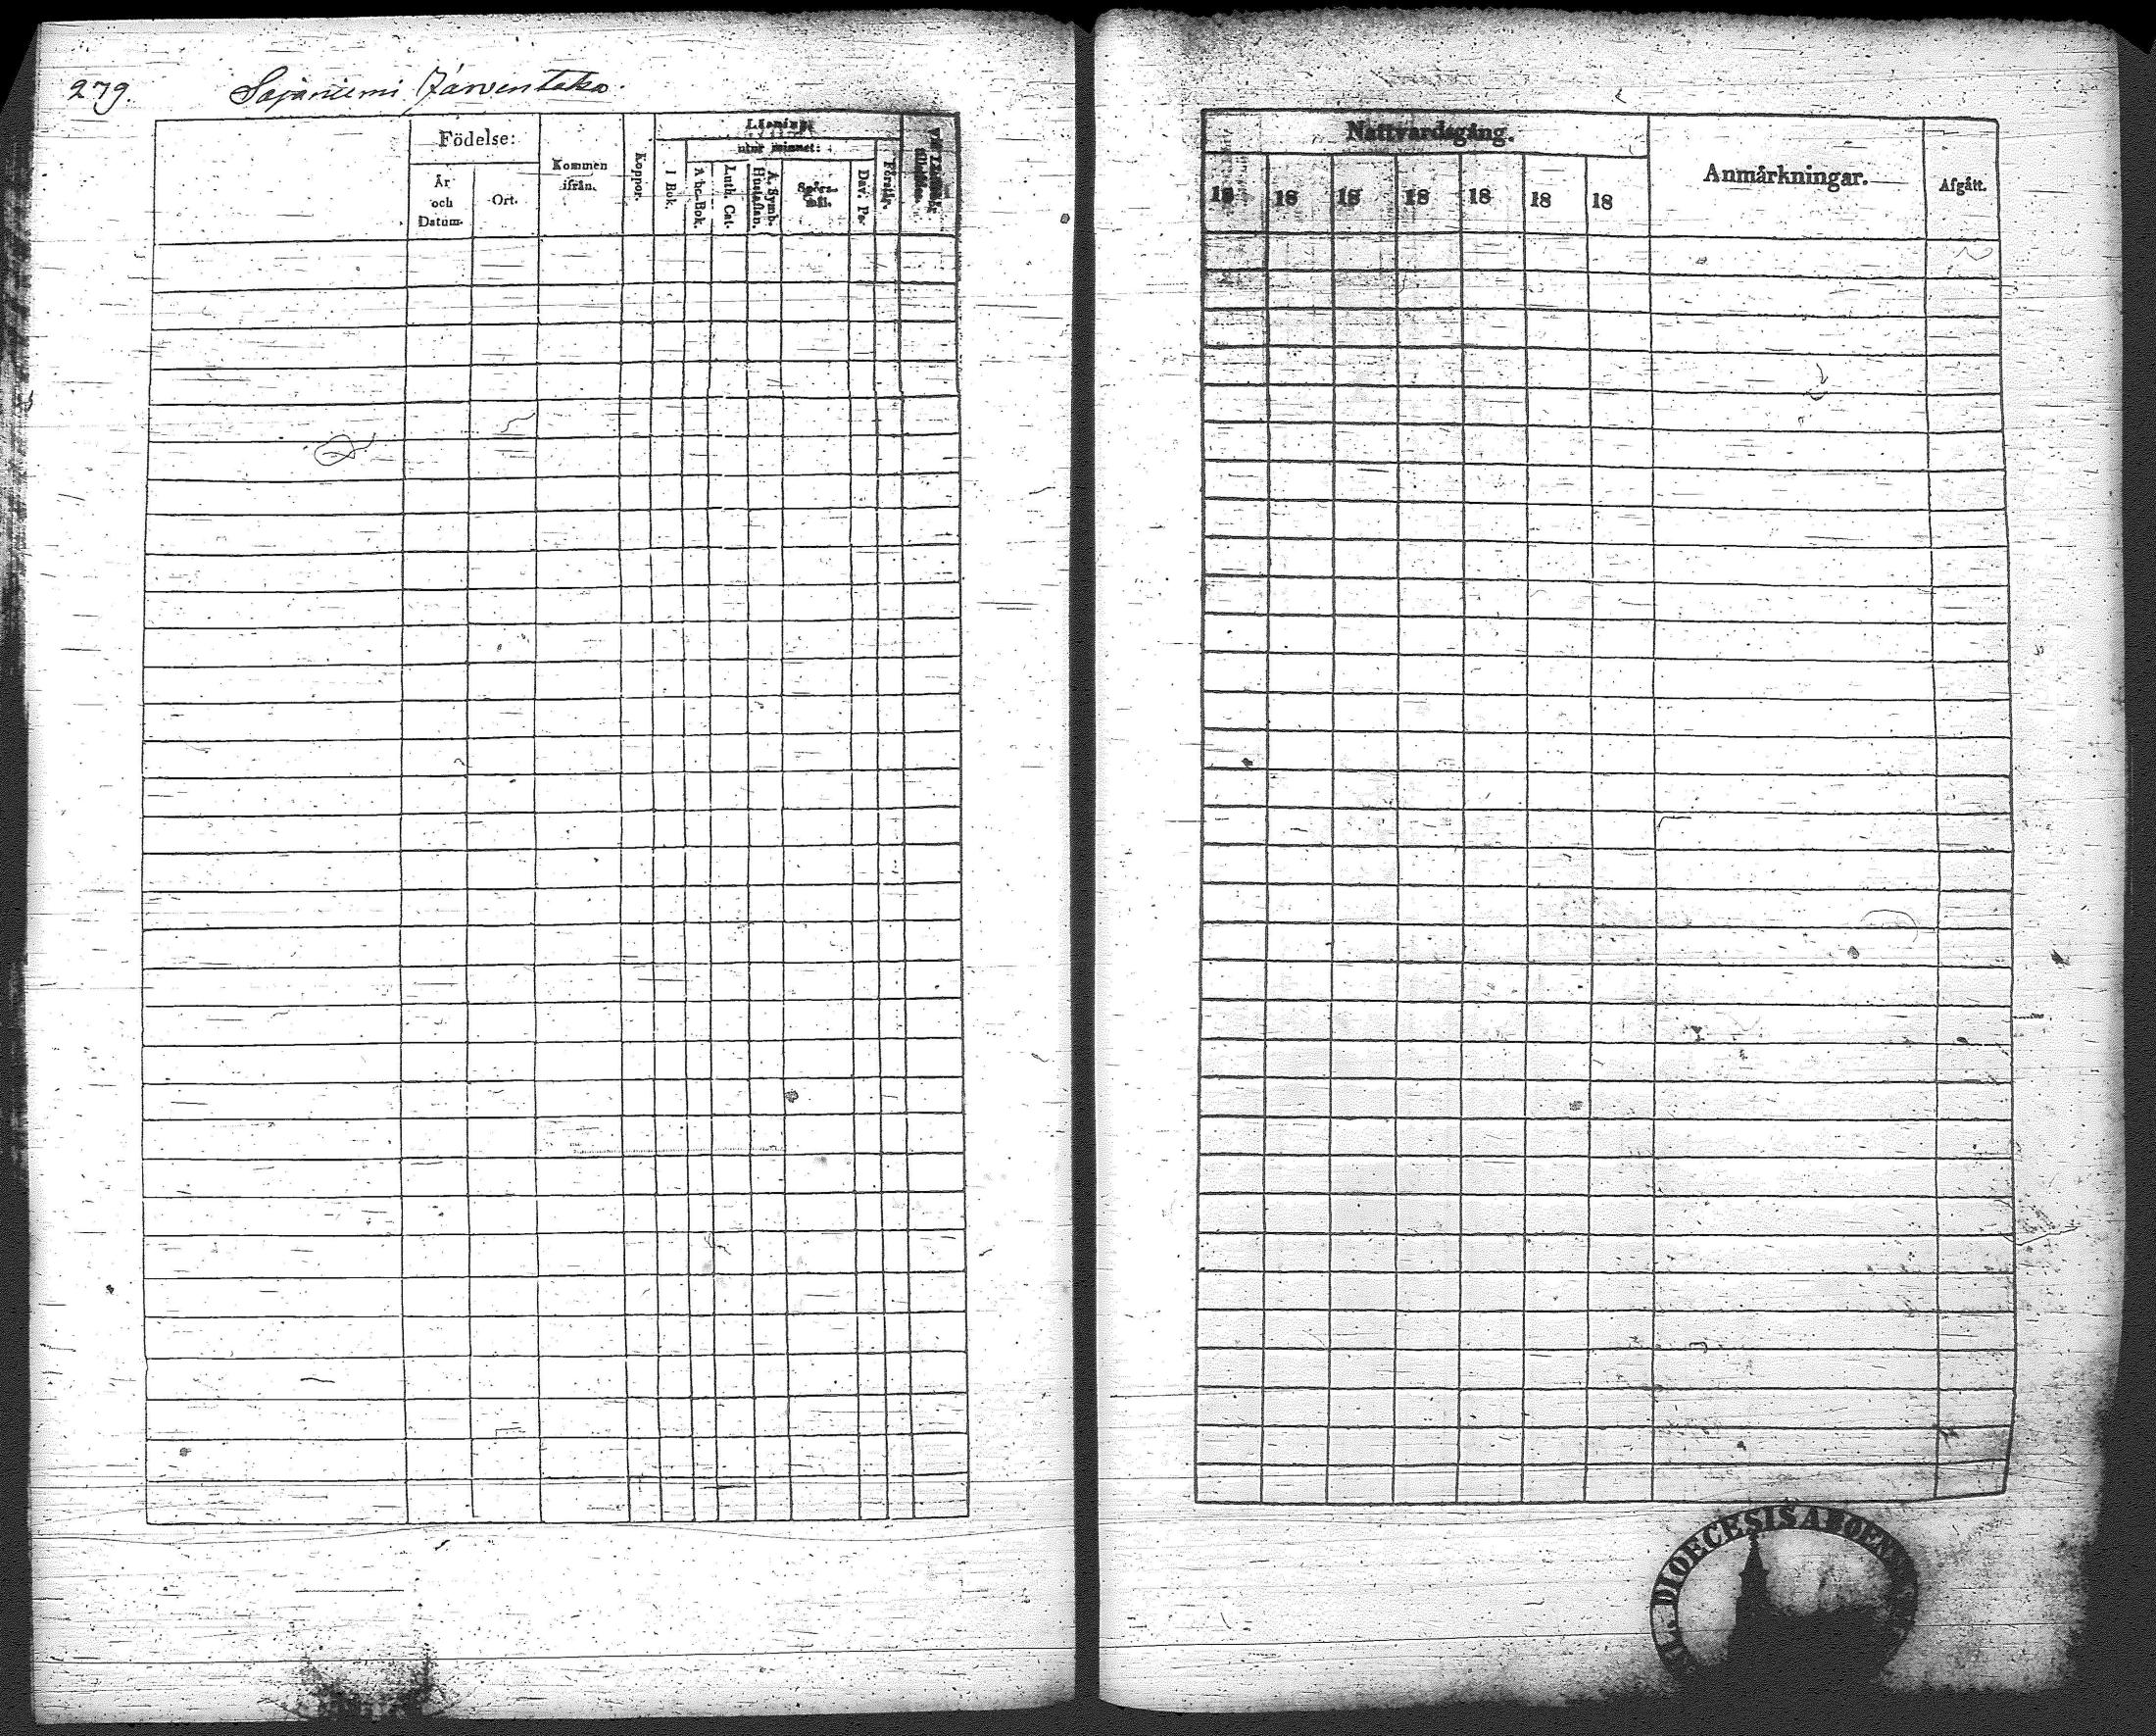 279. Sajaniemi Järventaka.
Födelse:
År
och
Datum.
Ort.
Kommen
ifrån.
Koppor.
Läsning:
utur minnet:
I Bok.
Abc-Bok.
Luth. Cat.
A. Symb.
Hustaflan.
Spörs-
mål.
Dav. Ps.
Förstår.
Nattvardsgång.
18 18 18 18 18 18 18
Anmärkningar.
Afgått.
DIOECESIS ABOENS